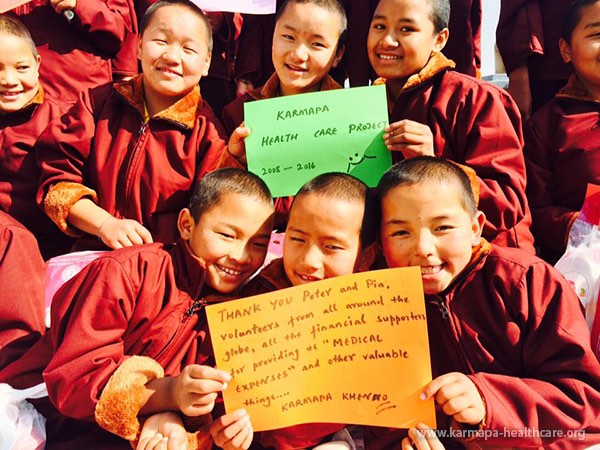 KARMAPA
HEALTH CARE PROJECT
2008 — 2016
THANK YOU Peter and Pia,
volunteers from all around the
globe, all the financial supporters
for providing us "MEDICAL
EXPENSES" and other valuable
things....
KARMAPA KHENNO
www.karmapa-healthcare.org